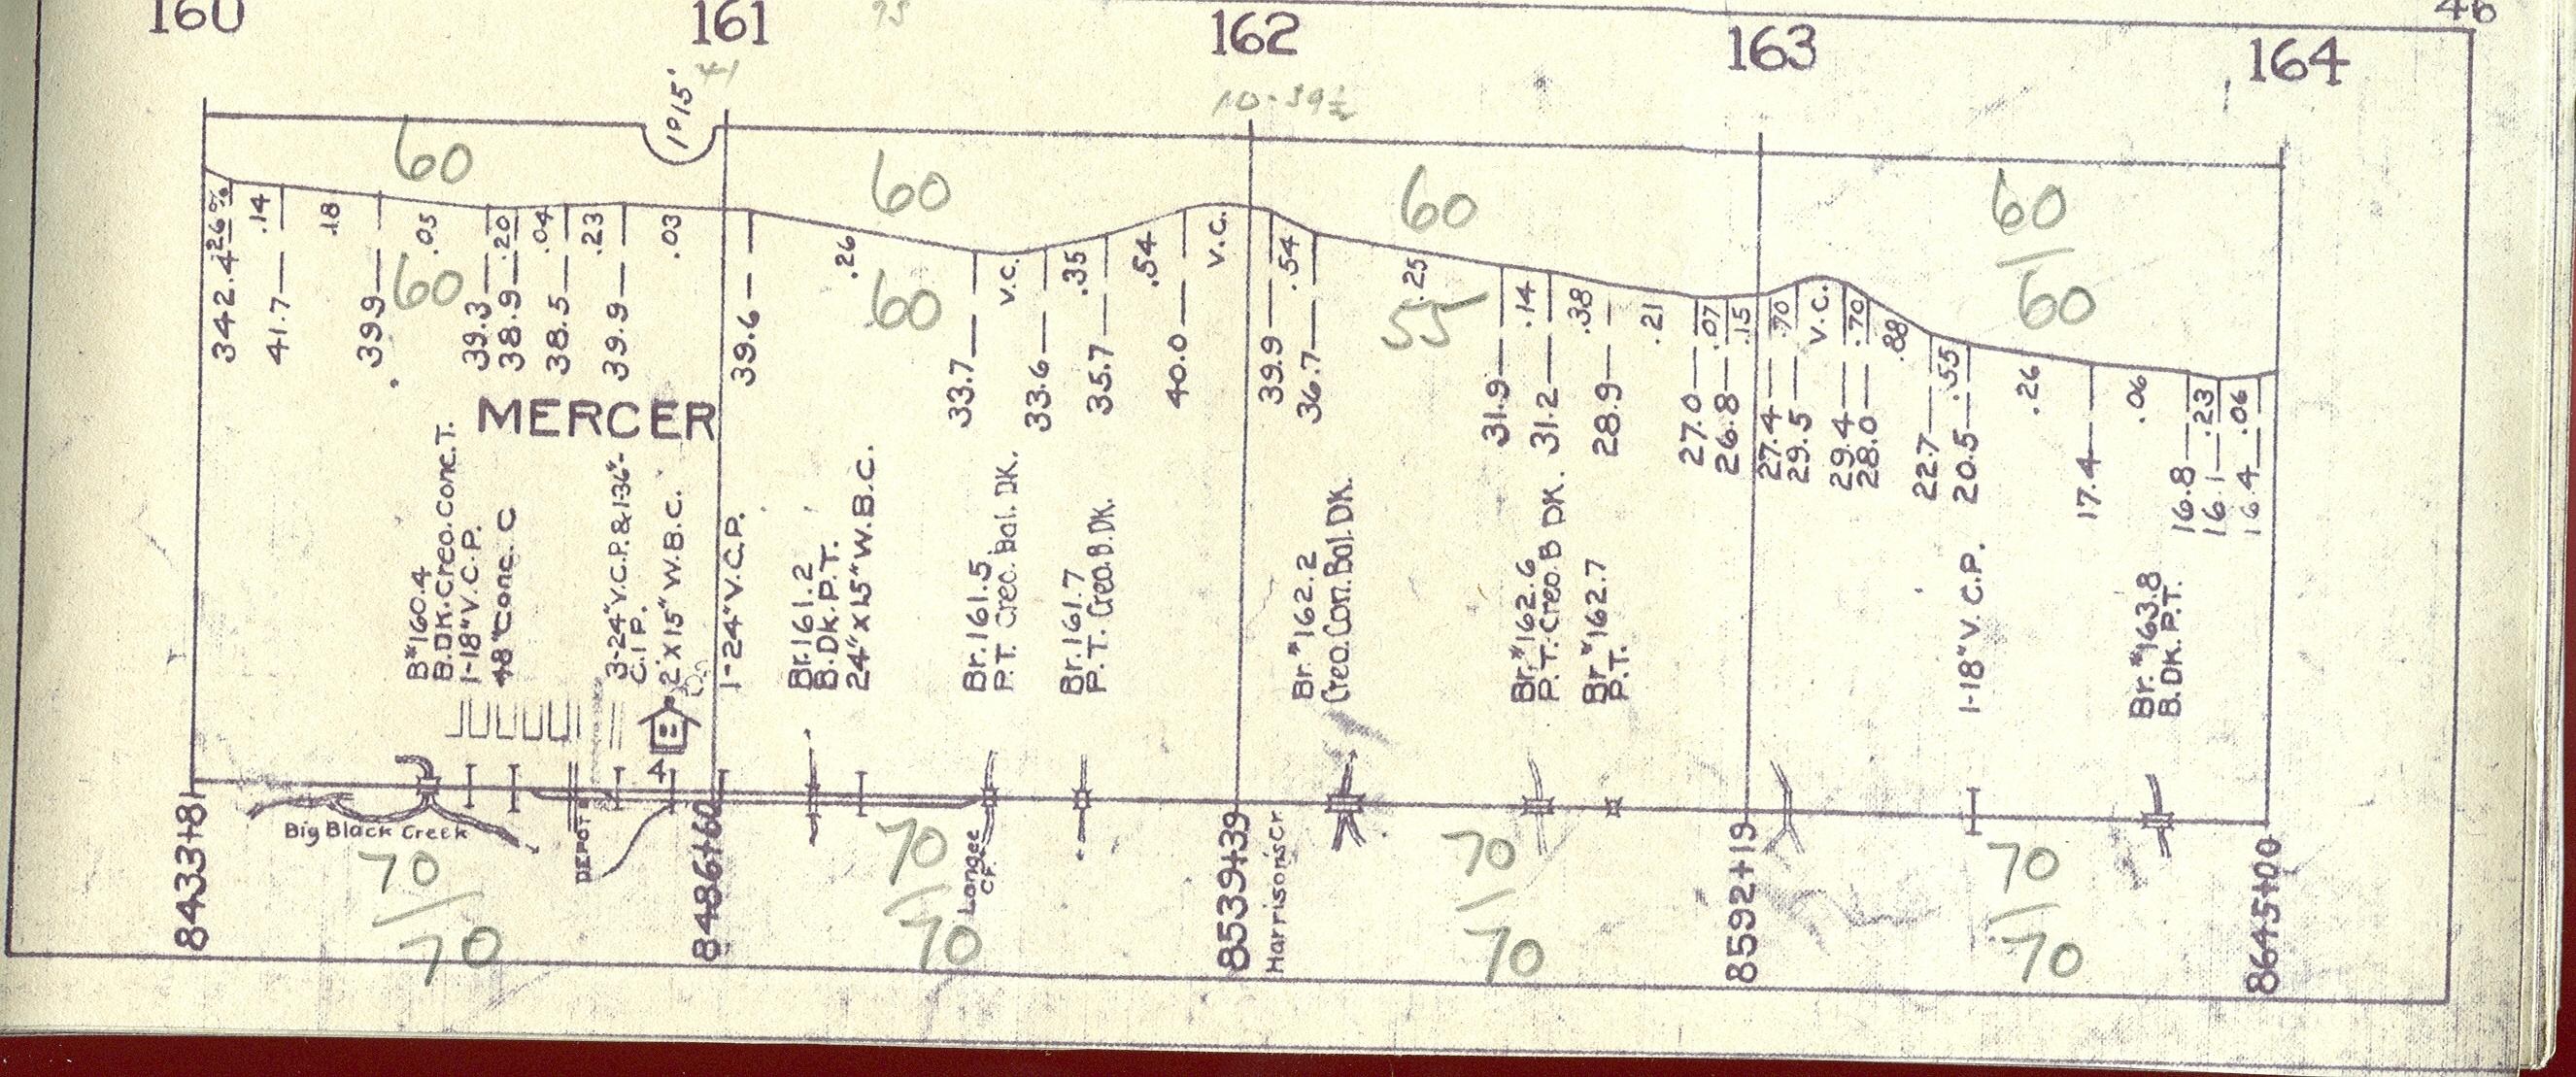 160
161
162
163
164
1°15'
10-39½
60
60
60
60
60
60
55
60
342.4
.26%
41.7
.14
39.9
.18
.05
39.3
38.9
.20
38.5
.04
39.9
.23
.03
39.6
.26
33.7
V.C.
33.6
.35
35.7
.54
40.0
V.C.
39.9
.54
36.7
.25
31.9
.14
31.2
.38
28.9
.21
27.0
.07
26.8
.15
27.4
.70
29.5
V.C.
29.4
.70
28.0
.88
22.7
.55
20.5
.26
17.4
.06
16.8
.23
16.1
.06
16.4
MERCER
B#160.4
B.DK.Creo.Conc.T.
1-18"V.C.P.
48"Conc. C
3-24"V.C.P.&1-36"
C.I.P.
2'X15"W.B.C.
1-24"V.C.P.
Br.161.2
B.DK.P.T.
24"X15"W.B.C.
Br.161.5
P.T. Creo. Bal. DK.
Br.161.7
P.T. Creo.B.DK.
Br.#162.2
Creo.Con.Bal.DK.
Br.#162.6
P.T.Creo.B DK.
Br#162.7
P.T.
1-18"V.C.P.
Br.#163.8
B.DK.P.T.
B
Big Black Creek
DEPOT
Harrison's Cr
8433+81
8486+60
8539+39
8592+19
8645+00
70
70
70
70
70
70
70
70